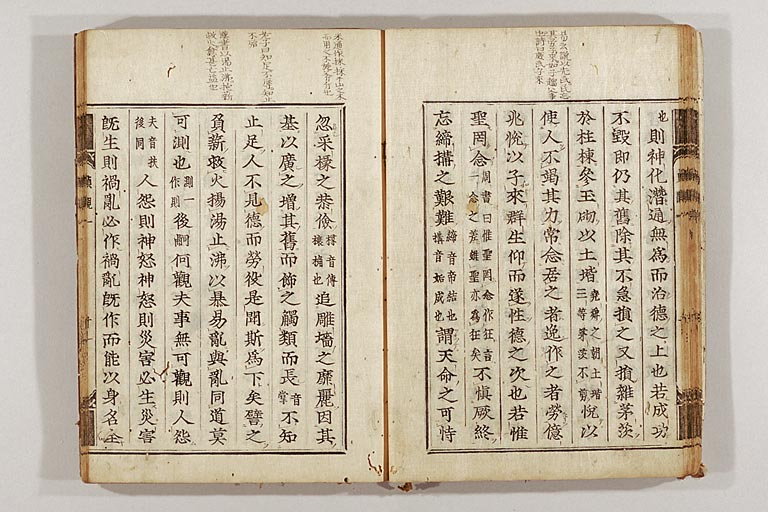 也則神化潛通無為而治德之上也若成功
不毀即仍其舊除其不急損之又損雜茅茨
於桂棟參玉砌以土堦堯舜之朝土堦三等茅茨不剪悅以
使人不竭其力常念居之者逸作之者勞億
兆悅以子來群生仰而遂性德之次也若惟
聖罔念周書曰惟聖罔念作狂言一念之荒雖聖亦為狂矣不慎厥終
忘締搆之艱難締音帝結也搆音姤成也謂天命之可恃
老子曰知足不辱知止
不殆
忽采椽之恭儉椽音傳榱桷也追雕墻之靡麗因其
基以廣之增其舊而飾之觸類而長音掌不知
止足人不見德而勞役是聞斯為下矣譬之
負薪救火揚湯止沸以暴易亂與亂同道莫
可測也測一作則後嗣何觀夫事無可觀則人怨
夫音扶後同人怨則神怒神怒則災害必生災害
既生則禍亂必作禍亂既作而能以身名全